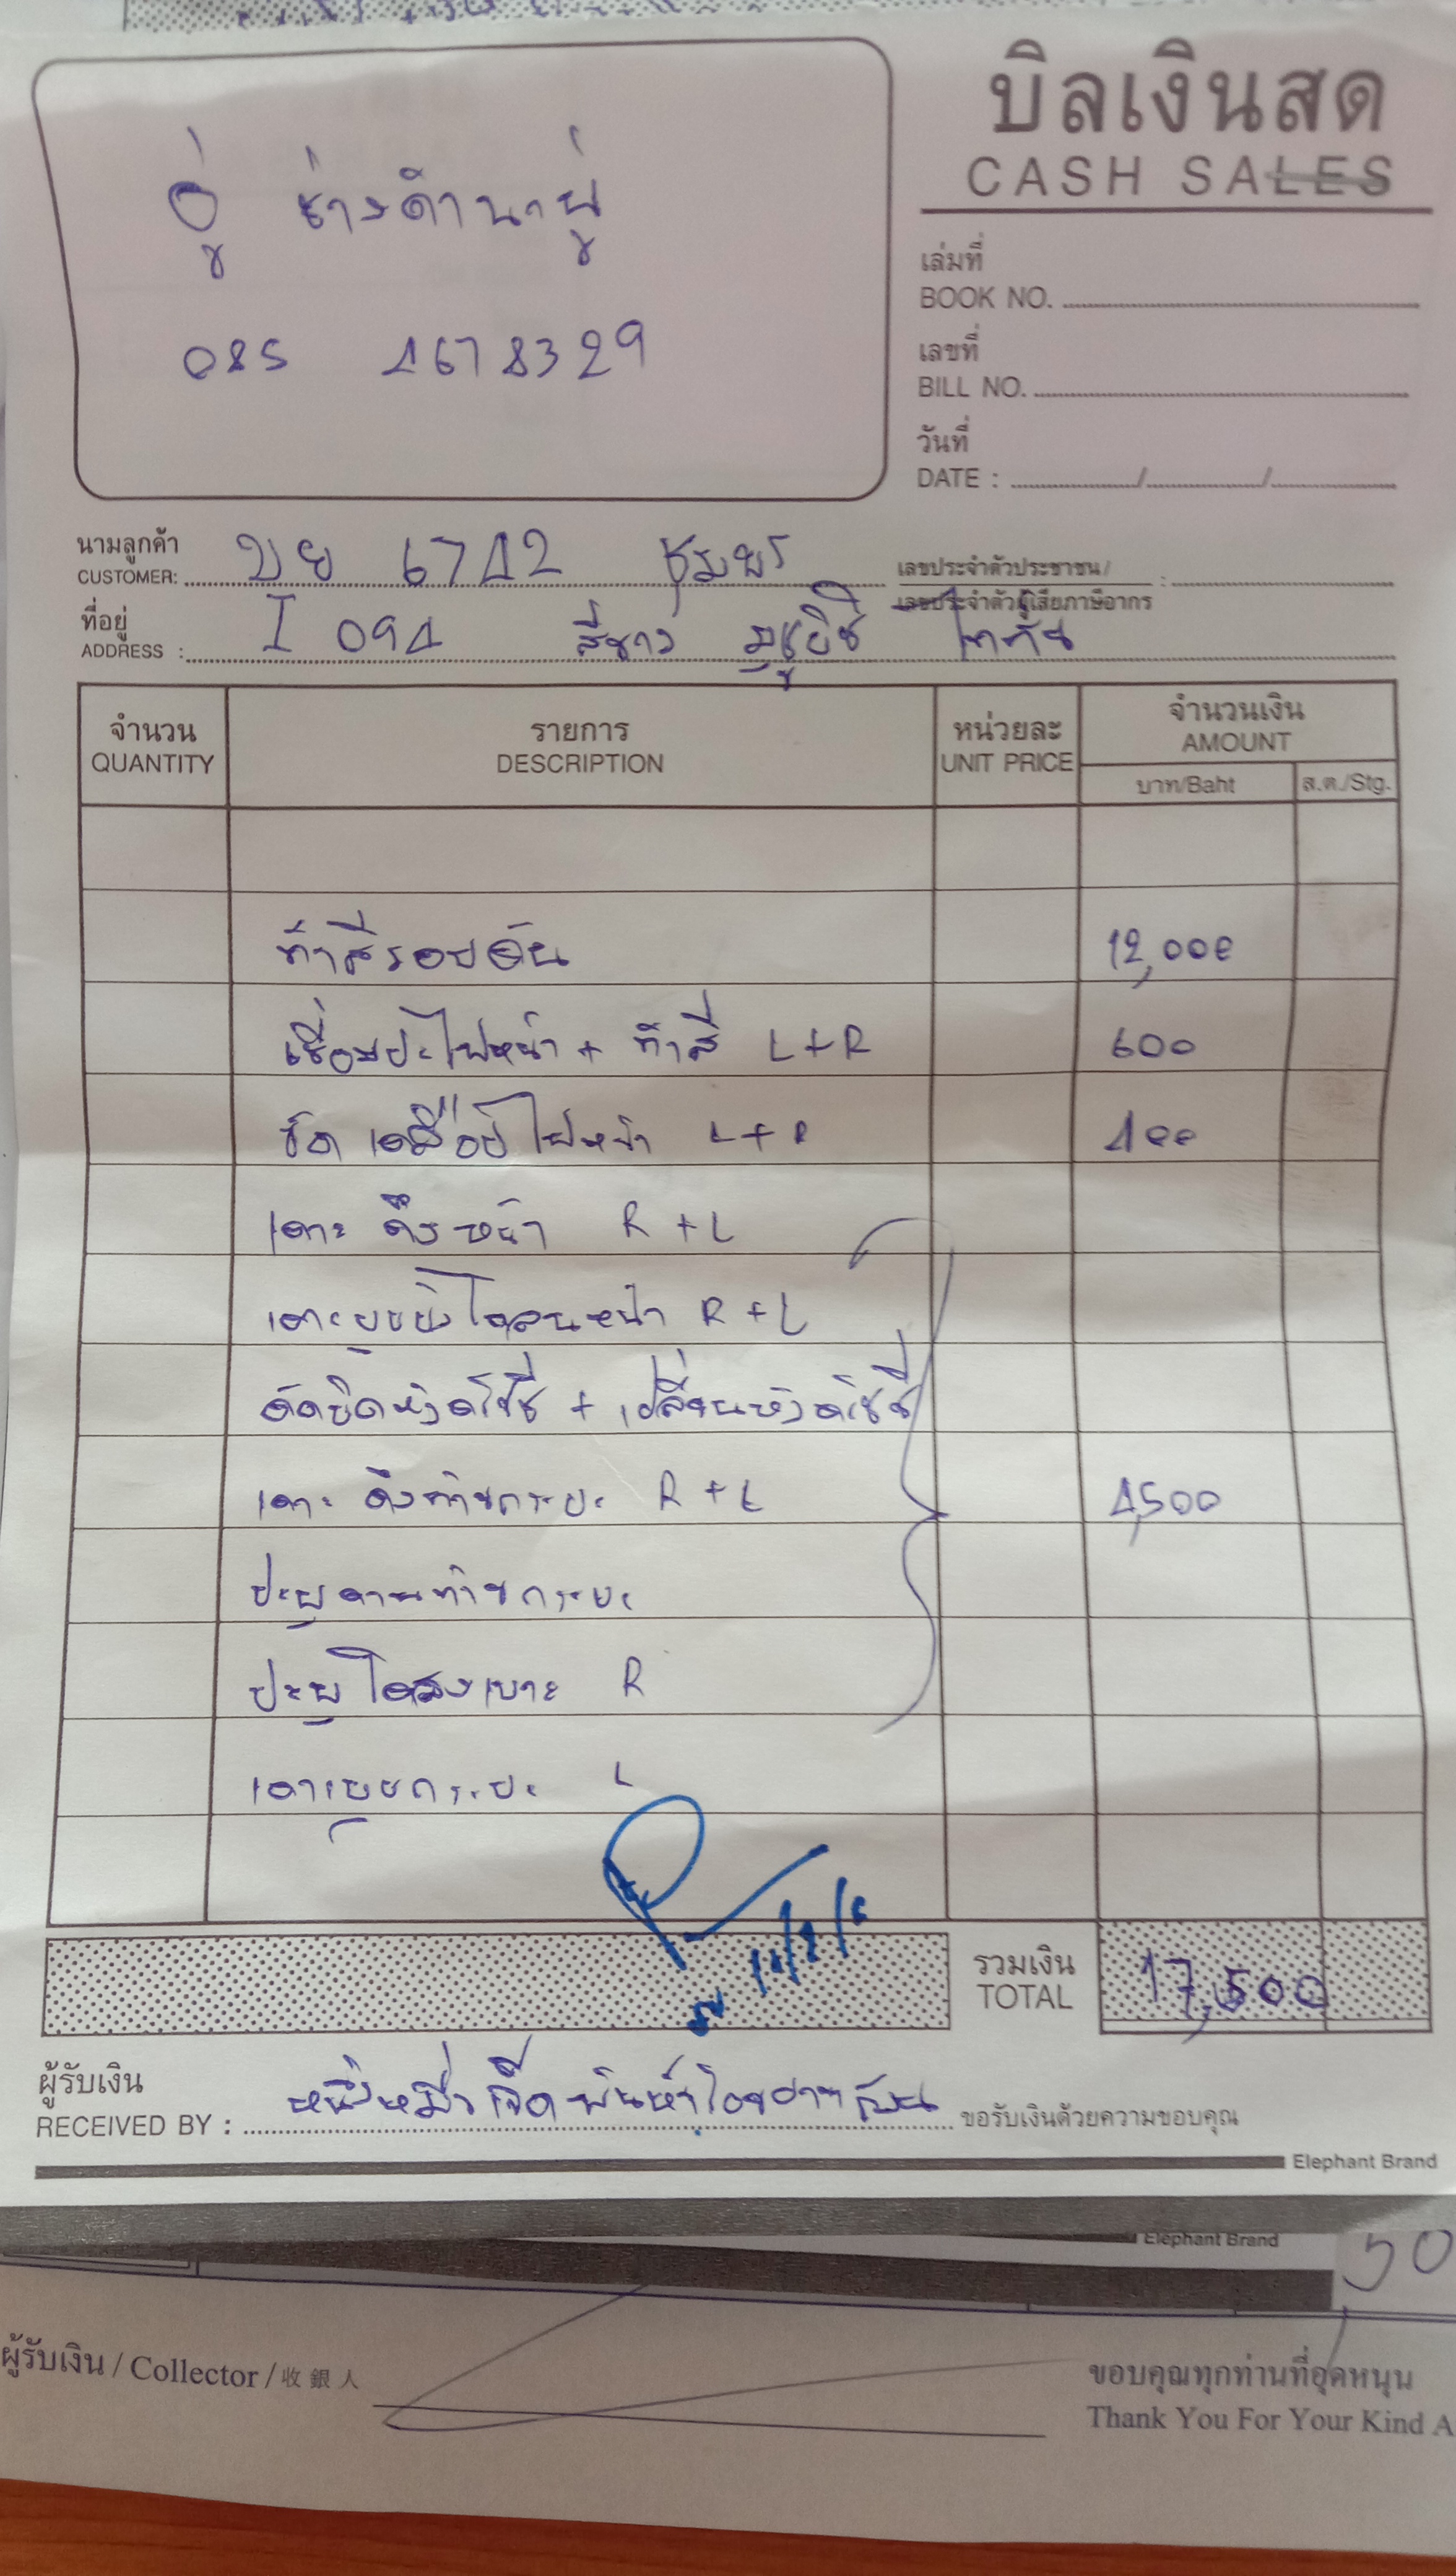 บิลเงินสด
CASH SALES
อู่ ช่างดำนาผู่
085 4678329
เล่มที่
BOOK NO.
เลขที่
BILL NO.
วันที่
DATE : / /
นามลูกค้า
CUSTOMER: บย 6742 ชุมพร
เลขประจำตัวประชาชน/
เลขประจำตัวผู้เสียภาษีอากร :
ที่อยู่
ADDRESS : I 094 สีขาว
จำนวน
QUANTITY
รายการ
DESCRIPTION
หน่วยละ
UNIT PRICE
จำนวนเงิน
AMOUNT
บาท/Baht
ส.ต./Stg.
ทำสีรอบคัน 12,000
เชื่อมปะไฟหน้า + ทำสี L+R 600
ขัดเคลือบไฟหน้า L+R 400
เคาะ ดึงหน้า R+L
R+L
ดัดยืดหัวคัชซี + เปลี่ยนหัวคัชซี
เคาะ ดึงท้ายกระบะ R+L 4,500
ปะผุคานท้ายกระบะ
ปะผุ R
L
11/2/6
รวมเงิน
TOTAL 17,500
ผู้รับเงิน
RECEIVED BY : หนึ่งหมื่นเจ็ดพันห้าร้อยบาทถ้วน ขอรับเงินด้วยความขอบคุณ
Elephant Brand
Elephant Brand
50
ผู้รับเงิน / Collector / 收銀人
ขอบคุณทุกท่านที่อุดหนุน
Thank You For Your Kind A